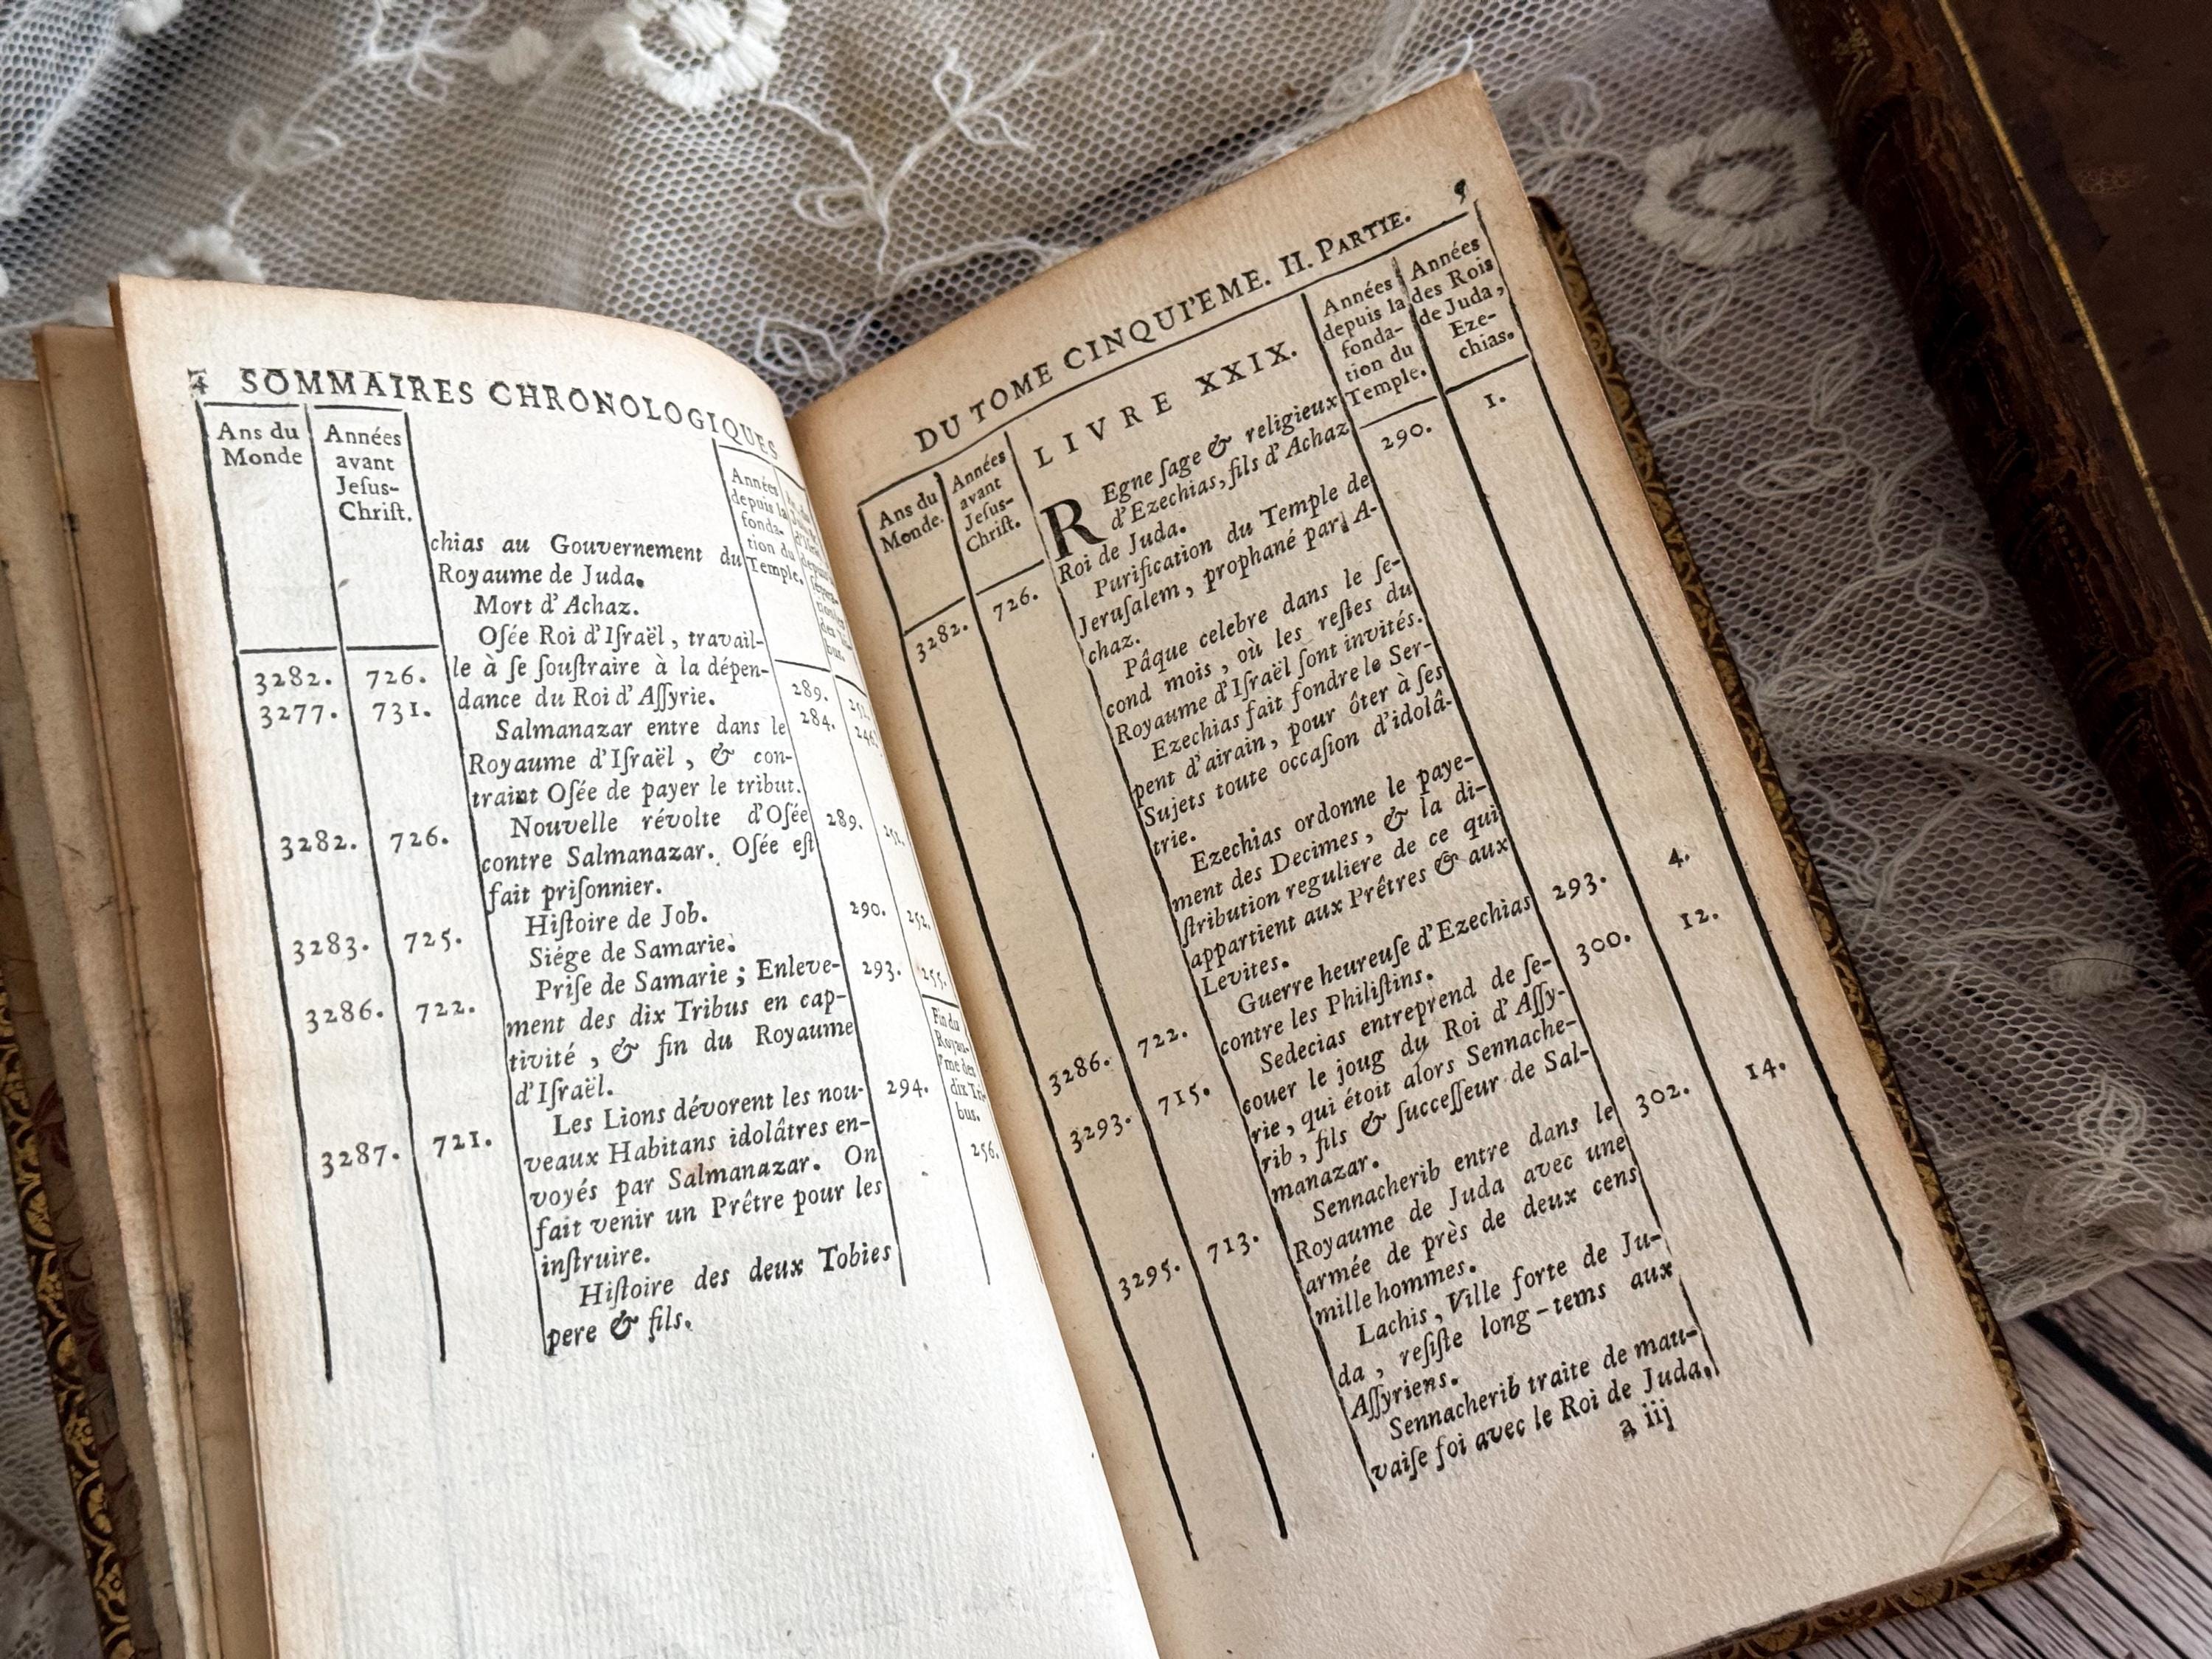 4 SOMMAIRES CHRONOLOGIQUES
Ans du
Monde
Années
avant
Jeſus-
Chriſt.
Années
depuis la
fonda-
tion du
Temple.
chias au Gouvernement du
Royaume de Juda.
Mort d'Achaz.
Oſée Roi d'Iſraël, travail-
3282. 726. le à ſe ſouſtraire à la dépen- 289.
3277. 731. dance du Roi d'Aſſyrie. 284.
Salmanazar entre dans le
Royaume d'Iſraël, & con-
traint Oſée de payer le tribut.
3282. 726. Nouvelle révolte d'Oſée 289.
contre Salmanazar. Oſée eſt
fait priſonnier.
Hiſtoire de Job.
3283. 725. Siége de Samarie. 290. 252.
3286. 722. Priſe de Samarie ; Enleve- 293. 255.
ment des dix Tribus en cap-
tivité, & fin du Royaume
d'Iſraël.
Fin du
Royau-
me des
dix Tri-
bus.
3287. 721. Les Lions dévorent les nou- 294. 256.
veaux Habitans idolâtres en-
voyés par Salmanazar. On
fait venir un Prêtre pour les
inſtruire.
Hiſtoire des deux Tobies
pere & fils.
DU TOME CINQUI'EME. II. PARTIE.
Ans du
Monde.
Années
avant
Jeſus-
Chriſt.
LIVRE XXIX.
Années
depuis la
fonda-
tion du
Temple.
Années
des Rois
de Juda,
Eze-
chias.
3282. 726. REgne ſage & religieux 290. 1.
d'Ezechias, fils d'Achaz
Roi de Juda.
Purification du Temple de
Jeruſalem, prophané par A-
chaz.
Pâque celebre dans le ſe-
cond mois, où les reſtes du
Royaume d'Iſraël ſont invités.
Ezechias fait fondre le Ser-
pent d'airain, pour ôter à ſes
Sujets toute occaſion d'idolâ-
trie.
Ezechias ordonne le paye-
ment des Decimes, & la di-
ſtribution reguliere de ce qui
appartient aux Prêtres & aux
Levites.
3286. 722. Guerre heureuſe d'Ezechias 293. 4.
contre les Philiſtins.
3293. 715. Sedecias entreprend de ſe- 300. 12.
couer le joug du Roi d'Aſſy-
rie, qui étoit alors Sennache-
rib, fils & ſucceſſeur de Sal-
manazar.
3295. 713. Sennacherib entre dans le 302. 14.
Royaume de Juda avec une
armée de près de deux cens
mille hommes.
Lachis, Ville forte de Ju-
da, reſiſte long-tems aux
Aſſyriens.
Sennacherib traite de mau-
vaiſe foi avec le Roi de Juda.
a iij